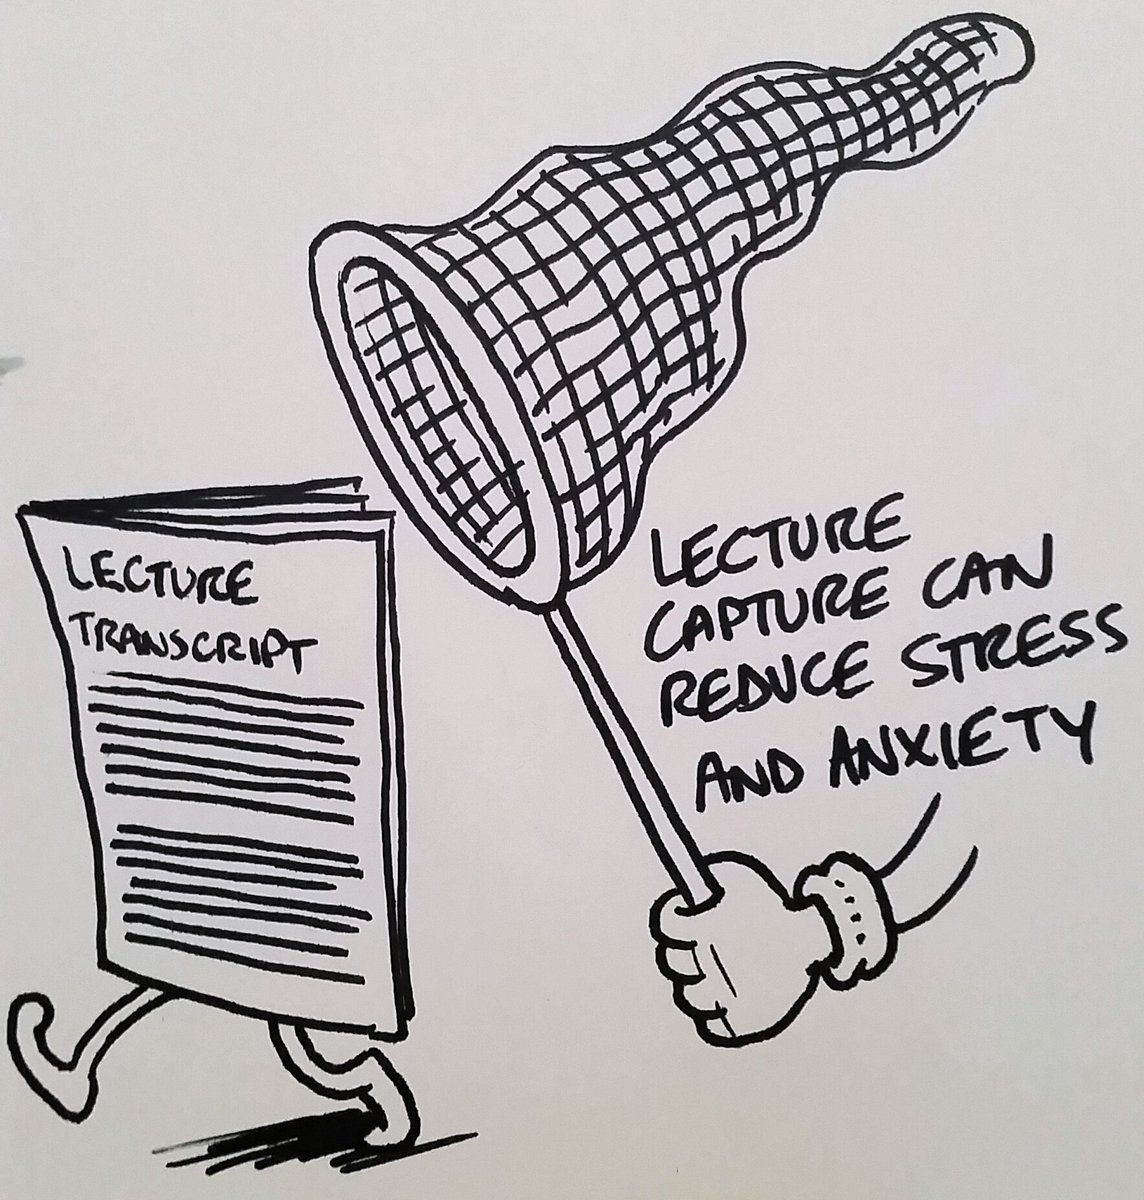 LECTURE
TRANSCRIPT
LECTURE
CAPTURE CAN
REDUCE STRESS
AND ANXIETY